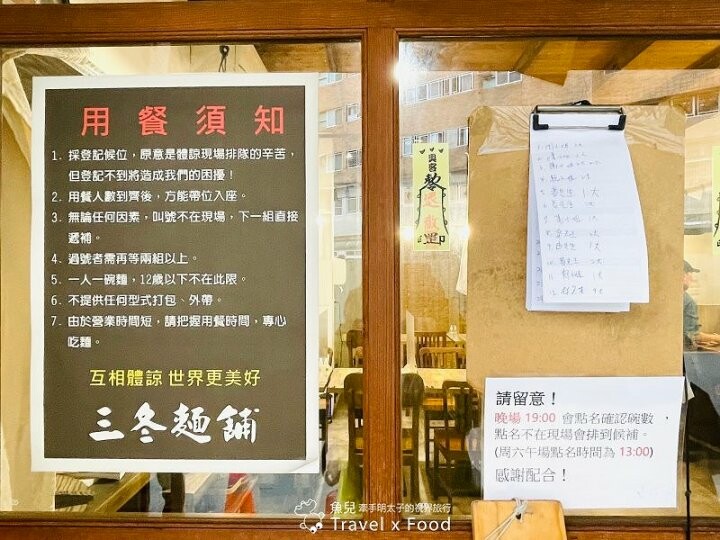 用餐須知
1. 採登記候位，原意是體諒現場排隊的辛苦，
但登記不到將造成我們的困擾！
2. 用餐人數到齊後，方能帶位入座。
3. 無論任何因素，叫號不在現場，下一組直接
遞補。
4. 過號者需再等兩組以上。
5. 一人一碗麵，12歲以下不在此限。
6. 不提供任何型式打包、外帶。
7. 由於營業時間短，請把握用餐時間，專心
吃麵。
互相體諒 世界更美好
三冬麵舖
奧客
退散
請留意！
晚場 19:00 會點名確認碗數，
點名不在現場會排到候補。
(周六午場點名時間為 13:00)
感謝配合！
魚兒 牽手明太子的視界旅行
Travel x Food